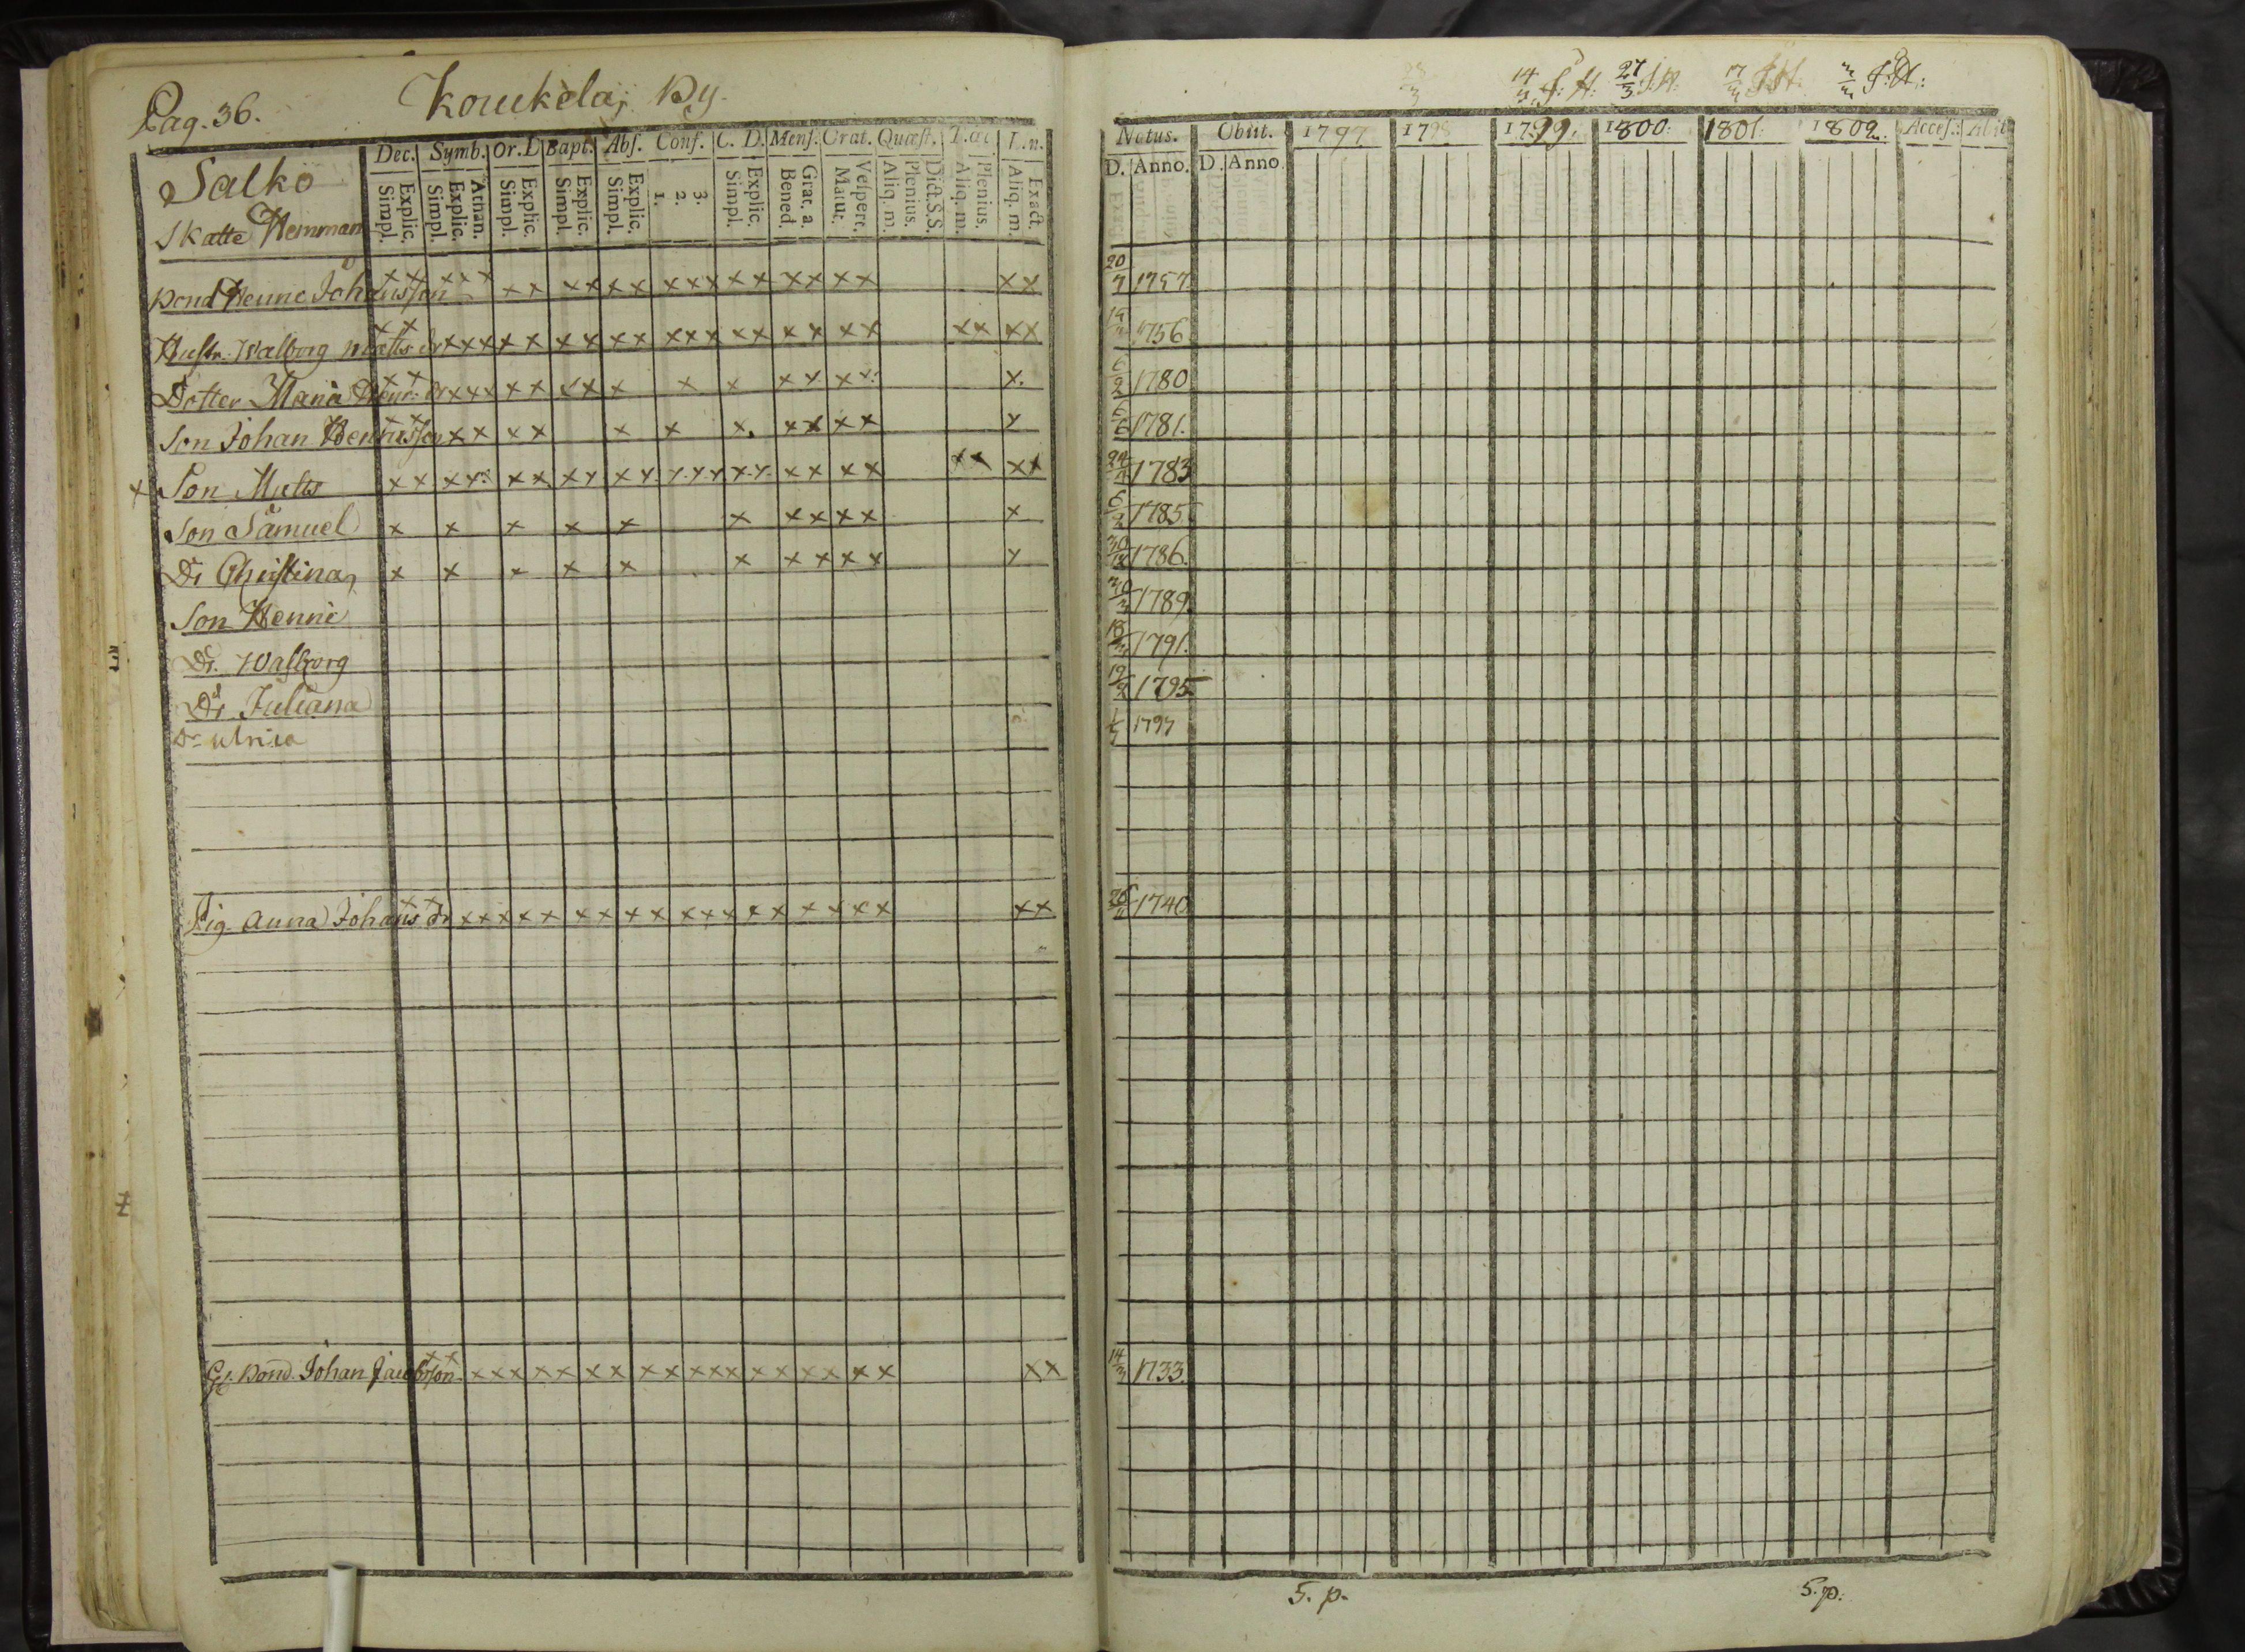 Pag. 36. Koukela, By.
14/3 J: H: 27/3 J: H: 17/3 J: H: J: H:
Dec. Symb. Or. D Bapt. Abs. Conf. C. D. Mens. Orat. Quæst. T. œc. L. n.
Natus. Obiit. 1797 1798 1799. 1800. 1801. 1802. Acces. Abit
Salko
Skatte Hemman
Explic. Simpl. Athan. Explic. Simpl. Explic. Simpl. Explic. Simpl. Explic. Simpl. 3. 2. 1. Explic. Simpl. Grat. a. Bened. Vespert. Matut. Dict. S. S. Plenius. Aliq. m. Plenius. Aliq. m. Exact. Aliq. m.
D. Anno. D. Anno.
Bond Henric Johansson x x x x x x x x x x x x x x x x x x x x x x 20/7 1757.
Hustr. Walborg Matts dr x x x x x x x x x x x x x x x x x x x x x x x x 1756
Dotter Maria Henr: dr x x x x x x x x x x x x x x x x x. 6/2 1780
Son Johan Henricsson x x x x x x x x x x x x x 6/6 1781.
x Son Matts x x x x x x x x x x x x x x x x x x x x x x x x 24/4 1783
Son Samuel x x x x x x x x x x x 6/2 1785.
Dr Christina x x x x x x x x x x x 1786.
Son Henric 30/3 1789.
Dr. Walborg 1791.
Dr Juliana 1795.
Dr Ulrica 1797
Pig. Anna Johans dr x x x x x x x x x x x x x x x x x x x x x x 1740
Gl. Bond. Johan Jacobsson x x x x x x x x x x x x x x x x x x x x x x 14/3 1733.
5. p. 5. p.